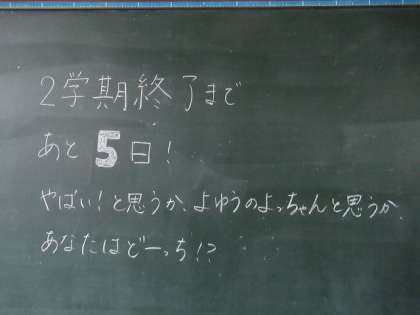 2学期終了まで
あと5日!
やばい!と思うか、よゆうのよっちゃんと思うか、
あなたはどーっち!?